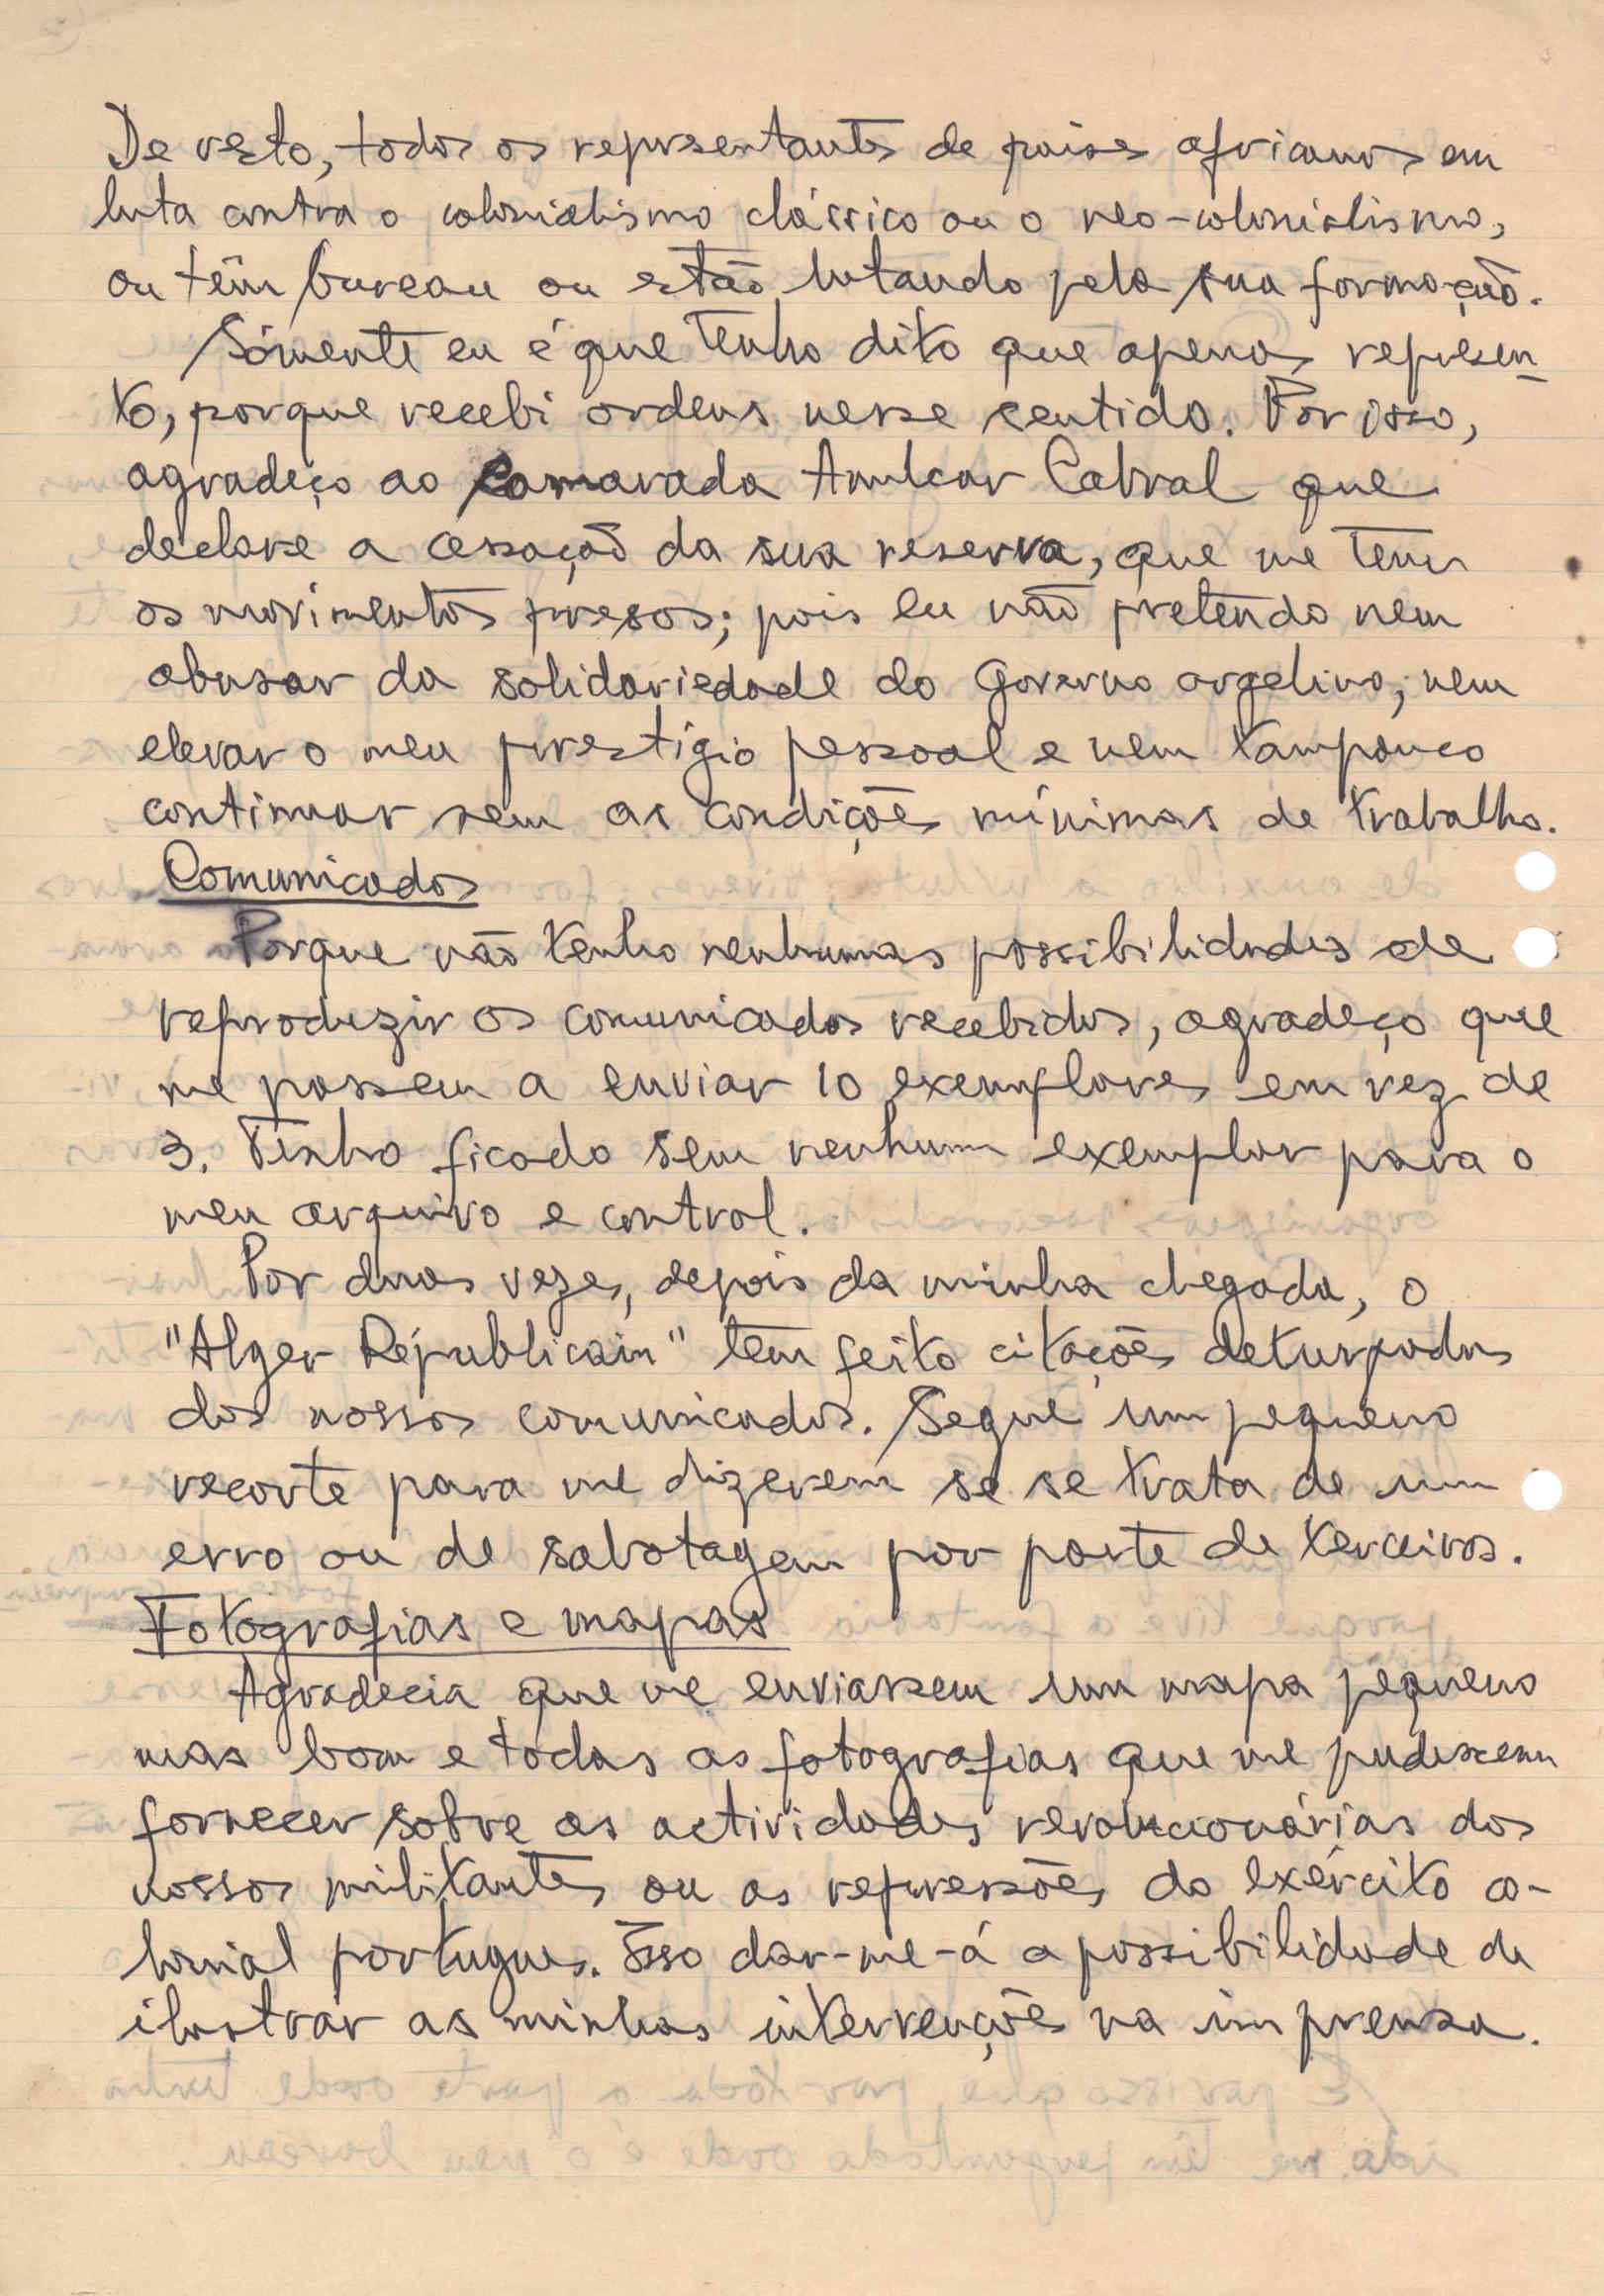 De resto, todos os representantes de países africanos em
luta contra o colonialismo clássico ou o neo-colonialismo,
ou têm bureau ou estão lutando pela sua formação.
Sòmente eu é que tenho dito que apenas represen-
to, porque recebi ordens nesse sentido. Por isso,
agradeço ao Camarada Amilcar Cabral que
declare a cessação da sua reserva, que me tem
os movimentos presos; pois eu não pretendo nem
abusar da solidariedade do Governo argelino, nem
elevar o meu prestígio pessoal e nem tampouco
continuar sem as condições mínimas de trabalho.
Comunicados
Porque não tenho nenhumas possibilidades de
reproduzir os comunicados recebidos, agradeço que
me passem a enviar 10 exemplares em vez de
3. Tenho ficado sem nenhum exemplar para o
meu arquivo e control.
Por duas vezes, depois da minha chegada, o
"Alger Républicain" tem feito citações deturpadas
dos nossos comunicados. Segue um pequeno
recorte para me dizerem se se trata de um
erro ou de sabotagem por parte de terceiros.
Fotografias e mapas
Agradecia que me enviassem um mapa pequeno
mas bom e todas as fotografias que me pudessem
fornecer sobre as actividades revolucionárias dos
nossos militantes ou as repressões do exército co-
lonial portugues. Isso dar-me-á a possibilidade de
ilustrar as minhas intervenções na imprensa.